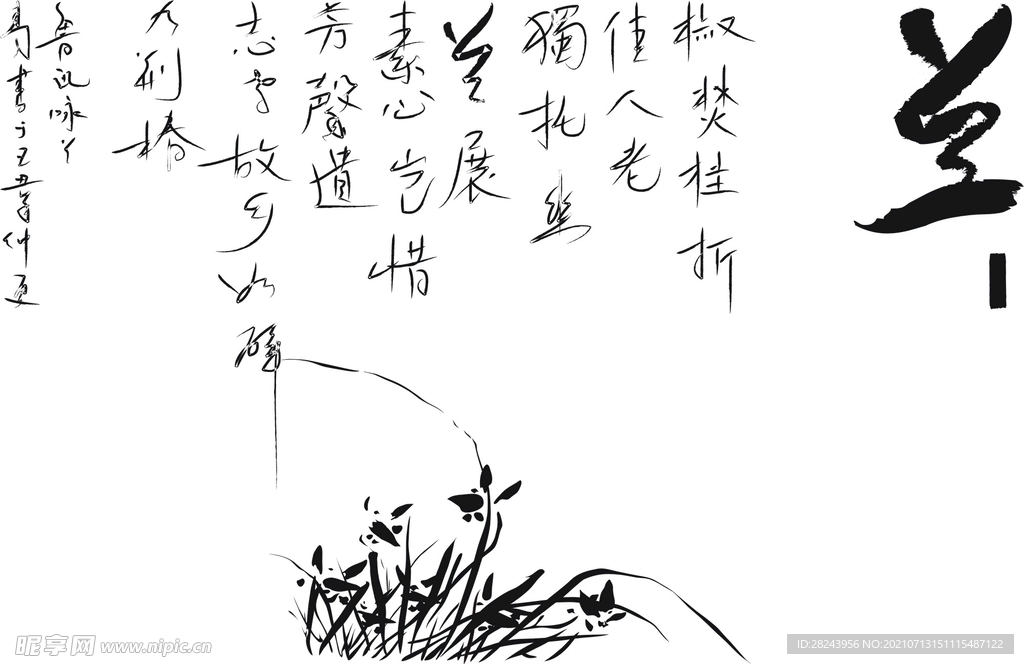 兰
椒焚桂折
佳人老
獨托
兰展
素心岂惜
芳馨遺
故乡如
荆
鲁迅咏
書于丑仲夏
昵享网 www.nipic.cn
ID:28243956 NO:20210713151115487122